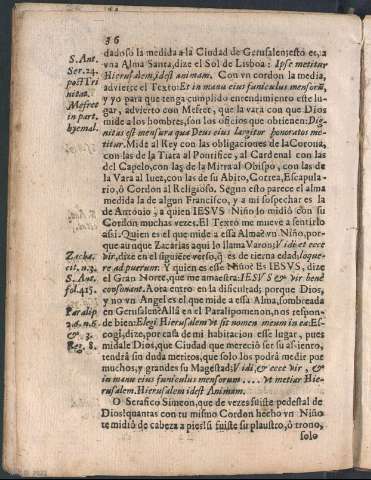 36
dadoso la medida a la Ciudad de Gerusalen: esto es, a
vna Alma Santa, dize el Sol de Lisboa: Ipse metitur
Hierusalem, idest animam. Con vn cordon la media,
advierte el Texto: Et in manu eius funiculus mensorũ,
y yo para que tenga cumplido entendimiento este lu-
gar, advierto con Mefret, que la vara con que Dios
mide a los hombres, son los oficios que obtienen: Dig-
nitas est mensura qua Deus eius largitur honoratos me-
titur. Mide al Rey con las obligaciones de la Corona,
con las de la Tiara al Pontifice, al Cardenal con las
del Capelo, con las de la Mitra al Obispo, con las de
la Vara al Iuez, con las de su Abito, Correa, Escapula-
rio, ò Cordon al Religioso. Segun esto parece el alma
medida la de algun Francisco, y a mi sospechar es la
de Antonio, a quien IESVS Niño lo midiò con su
Cordon muchas vezes. El Texto me mueve a sentirlo
assi. Quien es el que mide a essa Alma? vn Niño, por-
que aunque Zacarias aqui lo llama Varon; Vidi et ecce
vir, dize en el siguiẽte verso, q̃ es de tierna edad, loque-
re ad puerum. Y quien es esse Señor? Es IESVS, dize
el Gran Norte, que me amaestra: IESVS & vir benè
consonant. Aora entro en la dificultad; porque Dios,
y no vn Angel es el que mide a essa Alma, sombreada
en Gerusalen? Allà en el Paralipomenon, nos respon-
de bien: Elegi Hierusalem vt sit nomen meum in ea: Es-
cogi, dize, por casa de mi habitacion esse lugar, pues
midale Dios, que Ciudad que mereciò ser su assiento,
tendrà sin duda meritos, que solo los podrà medir por
muchos, y grandes su Magestad; Vidi, & ecce vir, &
in manu eius funiculus mensorum . . . . vt metiar Hie-
rusalem. Hierusalem idest Animam.
O Serafico Simeon, que de vezes fuiste pedestal de
Dios! quantas con tu mismo Cordon hecho vn Niño
te midiò de cabeza a pies! si fuiste su plaustro, ò trono,
solo
S. Ant.
Ser. 24.
post Tri
nitat.
Mefret
in part.
hyemal.
Zacha.
cit. n. 2.
S. Ant.
fol. 425.
Paralip
2. 6. n. 6
& 3.
Reg. 8.